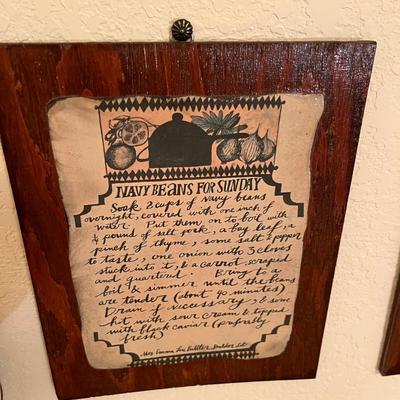 NAVY BEANS FOR SUNDAY
Soak 2 cups of Navy beans
overnight, covered with one inch of
water. Put them on to boil with
¼ pound of salt pork, a bay leaf, a
pinch of thyme, some salt & pepper
to taste, one onion with 3 cloves
stuck into it, & a carrot, scraped
and quartered. Bring to a
boil & simmer until the beans
are tender (about 40 minutes)
Drain if necessary, & serve
hot with sour cream & topped
with black caviar (preferably
fresh)
Mrs. Emma Lou